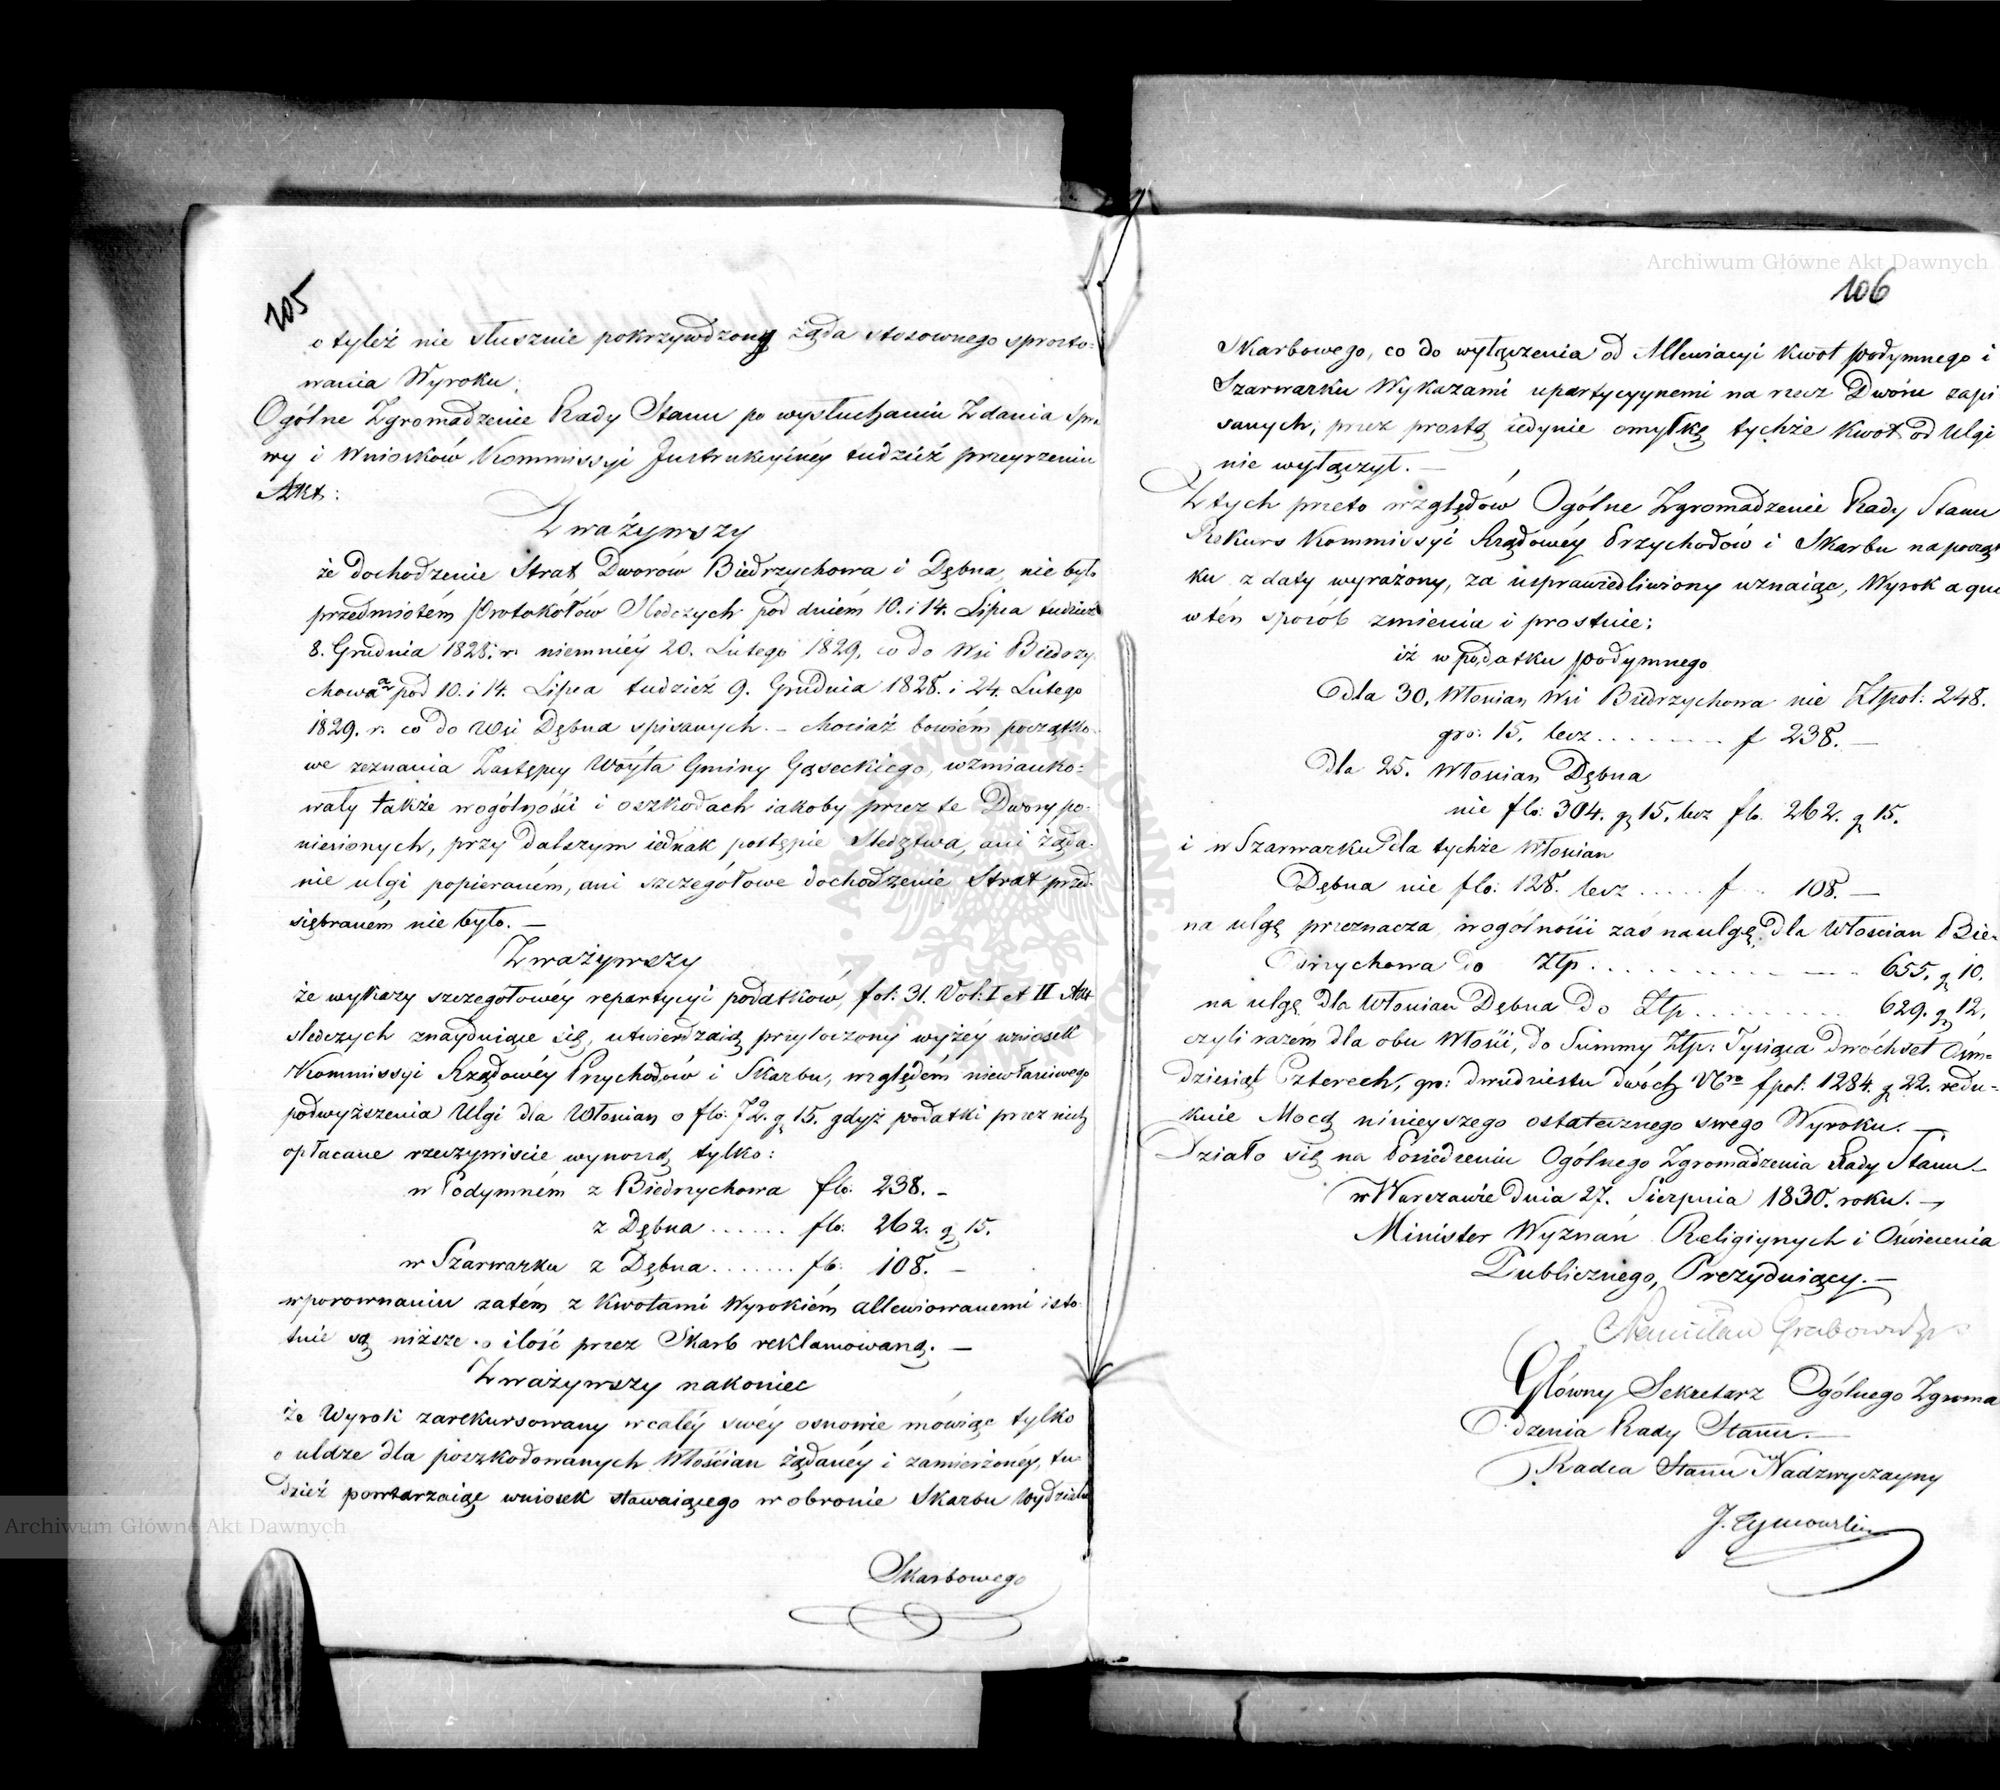 105
o tyleż nie słusznie pokrzywdzony żąda stosownego sprosto-
wania Wyroku;
Ogólne Zgromadzenie Rady Stanu po wysłuchaniu Zdania spra
wy i Wniosków Kommissyi Instrukcyinéy tudzież przeyrzeniu
Akt:
Zważywszy
że dochodzenie Strat Dworów Biedrzychowa i Dębna, nie było
przedmiotém Protokółów Sledczych pod dniém 10. i 14. Lipca tudzież
8. Grudnia 1828. r. niemniéy 20. Lutego 1829, co do Wsi Biedrzy
chowa a pod 10. i 14. Lipca tudzież 9. Grudnia 1828. i 24. Lutego
1829. r. co do Wsi Dębna spisanych. – chociaż bowiém początko-
we zeznania Zastępcy Wóyta Gminy Gąseckiego, wzmianko-
wały także wogólności i oszkodach iakoby przez te Dwory po-
niesionych, przy dalszym iednak postępie Sledztwa, ani żąda-
nie ulgi popieraném, ani szczegółowe dochodzenie Strat przed-
sięwbraném nie było. —
Zważywszy
że wykazy szczegołowéy repartycyi podatków, fol: 31. Vol: I et II Akt
sledczych znayduiące się, utwierdzaią przytoczony wyżéy wniosek
Kommissyi Rządowéy Przychodów i Skarbu, względém niewłaściwego
podwyższenia Ulgi dla Włościan o flo: 72. g 15. gdyż podatki przez nich
opłacane rzeczywiście wynoszą tylko:
w Podymném z Biedrzychowa flo: 238. –
z Dębna ...... flo: 262. g 15.
w Szarwarku z Dębna ....... flo: 108. –
wporownaniu zatém z kwotami Wyrokiém allewiowanemi isto-
tnie są niższe o ilość przez Skarb reklamowaną. —
Zważywszy nakoniec
że Wyrok zarekursowany wcałéy swéy osnowie mówiąc tylko
o uldze dla poszkodowanych Włościan żądanéy i zamierzonéy, tu-
dzież powtarzaiąc wniosek stawaiącego w obronie Skarbu Wydziału
Skarbowego
106
Skarbowego, co do wyłączenia od Allewiacyi kwot podymnego i
Szarwarku Wykazami repartycyynemi na rzecz Dworu zapi
sanych, przez prostą iedynie omyłkę tychże kwot od Ulgi
nie wyłączył. —
Z tych przeto względów Ogólne Zgromadzenie Rady Stanu
Rekurs Kommissyi Rządowéy Przychodów i Skarbu na począt
ku z daty wyrażony, za usprawiedliwiony uznaiąc, Wyrok a quo
w tén sposób zmienia i prostuie:
iż w podatku podymnego
dla 30. Włościan Wsi Biedrzychowa nie Złpol: 248.
gro: 15. lecz ........ f 238. —
Dla 25. Włościan Dębna
nie flo: 304. g 15. lecz flo. 262. g 15.
i w Szarwarku dla tychże Włościan
Dębna nie flo: 128. lecz ..... f .. 108. —
na ulgę przeznacza, wogólności zaś na ulgę dla Włościan Bie-
drzychowa do Złp. ........... 655. g 10.
na ulgę dla Włościan Dębna do Złp ......... 629. g 12,
czyli razém dla obu Włości, do Summy Złp: Tysiąca dwóchset Ośm-
dziesiąt Czterech, gro: dwudziestu dwóch Nro fpol: 1284. g 22. redu-
kuie Mocą ninieyszego ostatecznego swego Wyroku. —
Działo się na Posiedzeniu Ogólnego Zgromadzenia Rady Stanu
w Warszawie dnia 27. Sierpnia 1830. roku. —
Minister Wyznań Religiynych i Oświecenia
Publicznego, Prezyduiący. —
Stanisław Grabowski
Główny Sekretarz Ogólnego Zgroma
dzenia Rady Stanu. —
Radca Stanu Nadzwyczayny
J. Tymowski
Archiwum Główne Akt Dawnych
Archiwum Główne Akt Dawnych
ARCHIWUM GŁÓWNE AKT DAWNYCH